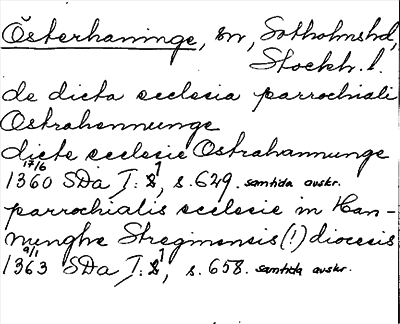 Österhaninge, sn, Sotholms hd,
Stockh. l.
de dicta ecclesia parrochiali
Ostrahannunge
dicte ecclesie Ostrahannunge
17/6
1360 SDa I:1, s. 629. samtida avskr.
parrochialis ecclesie in Han-
nunghe Streginensis (!) diocesis
9/1
1363 SDa I:1, s. 658. samtida avskr.